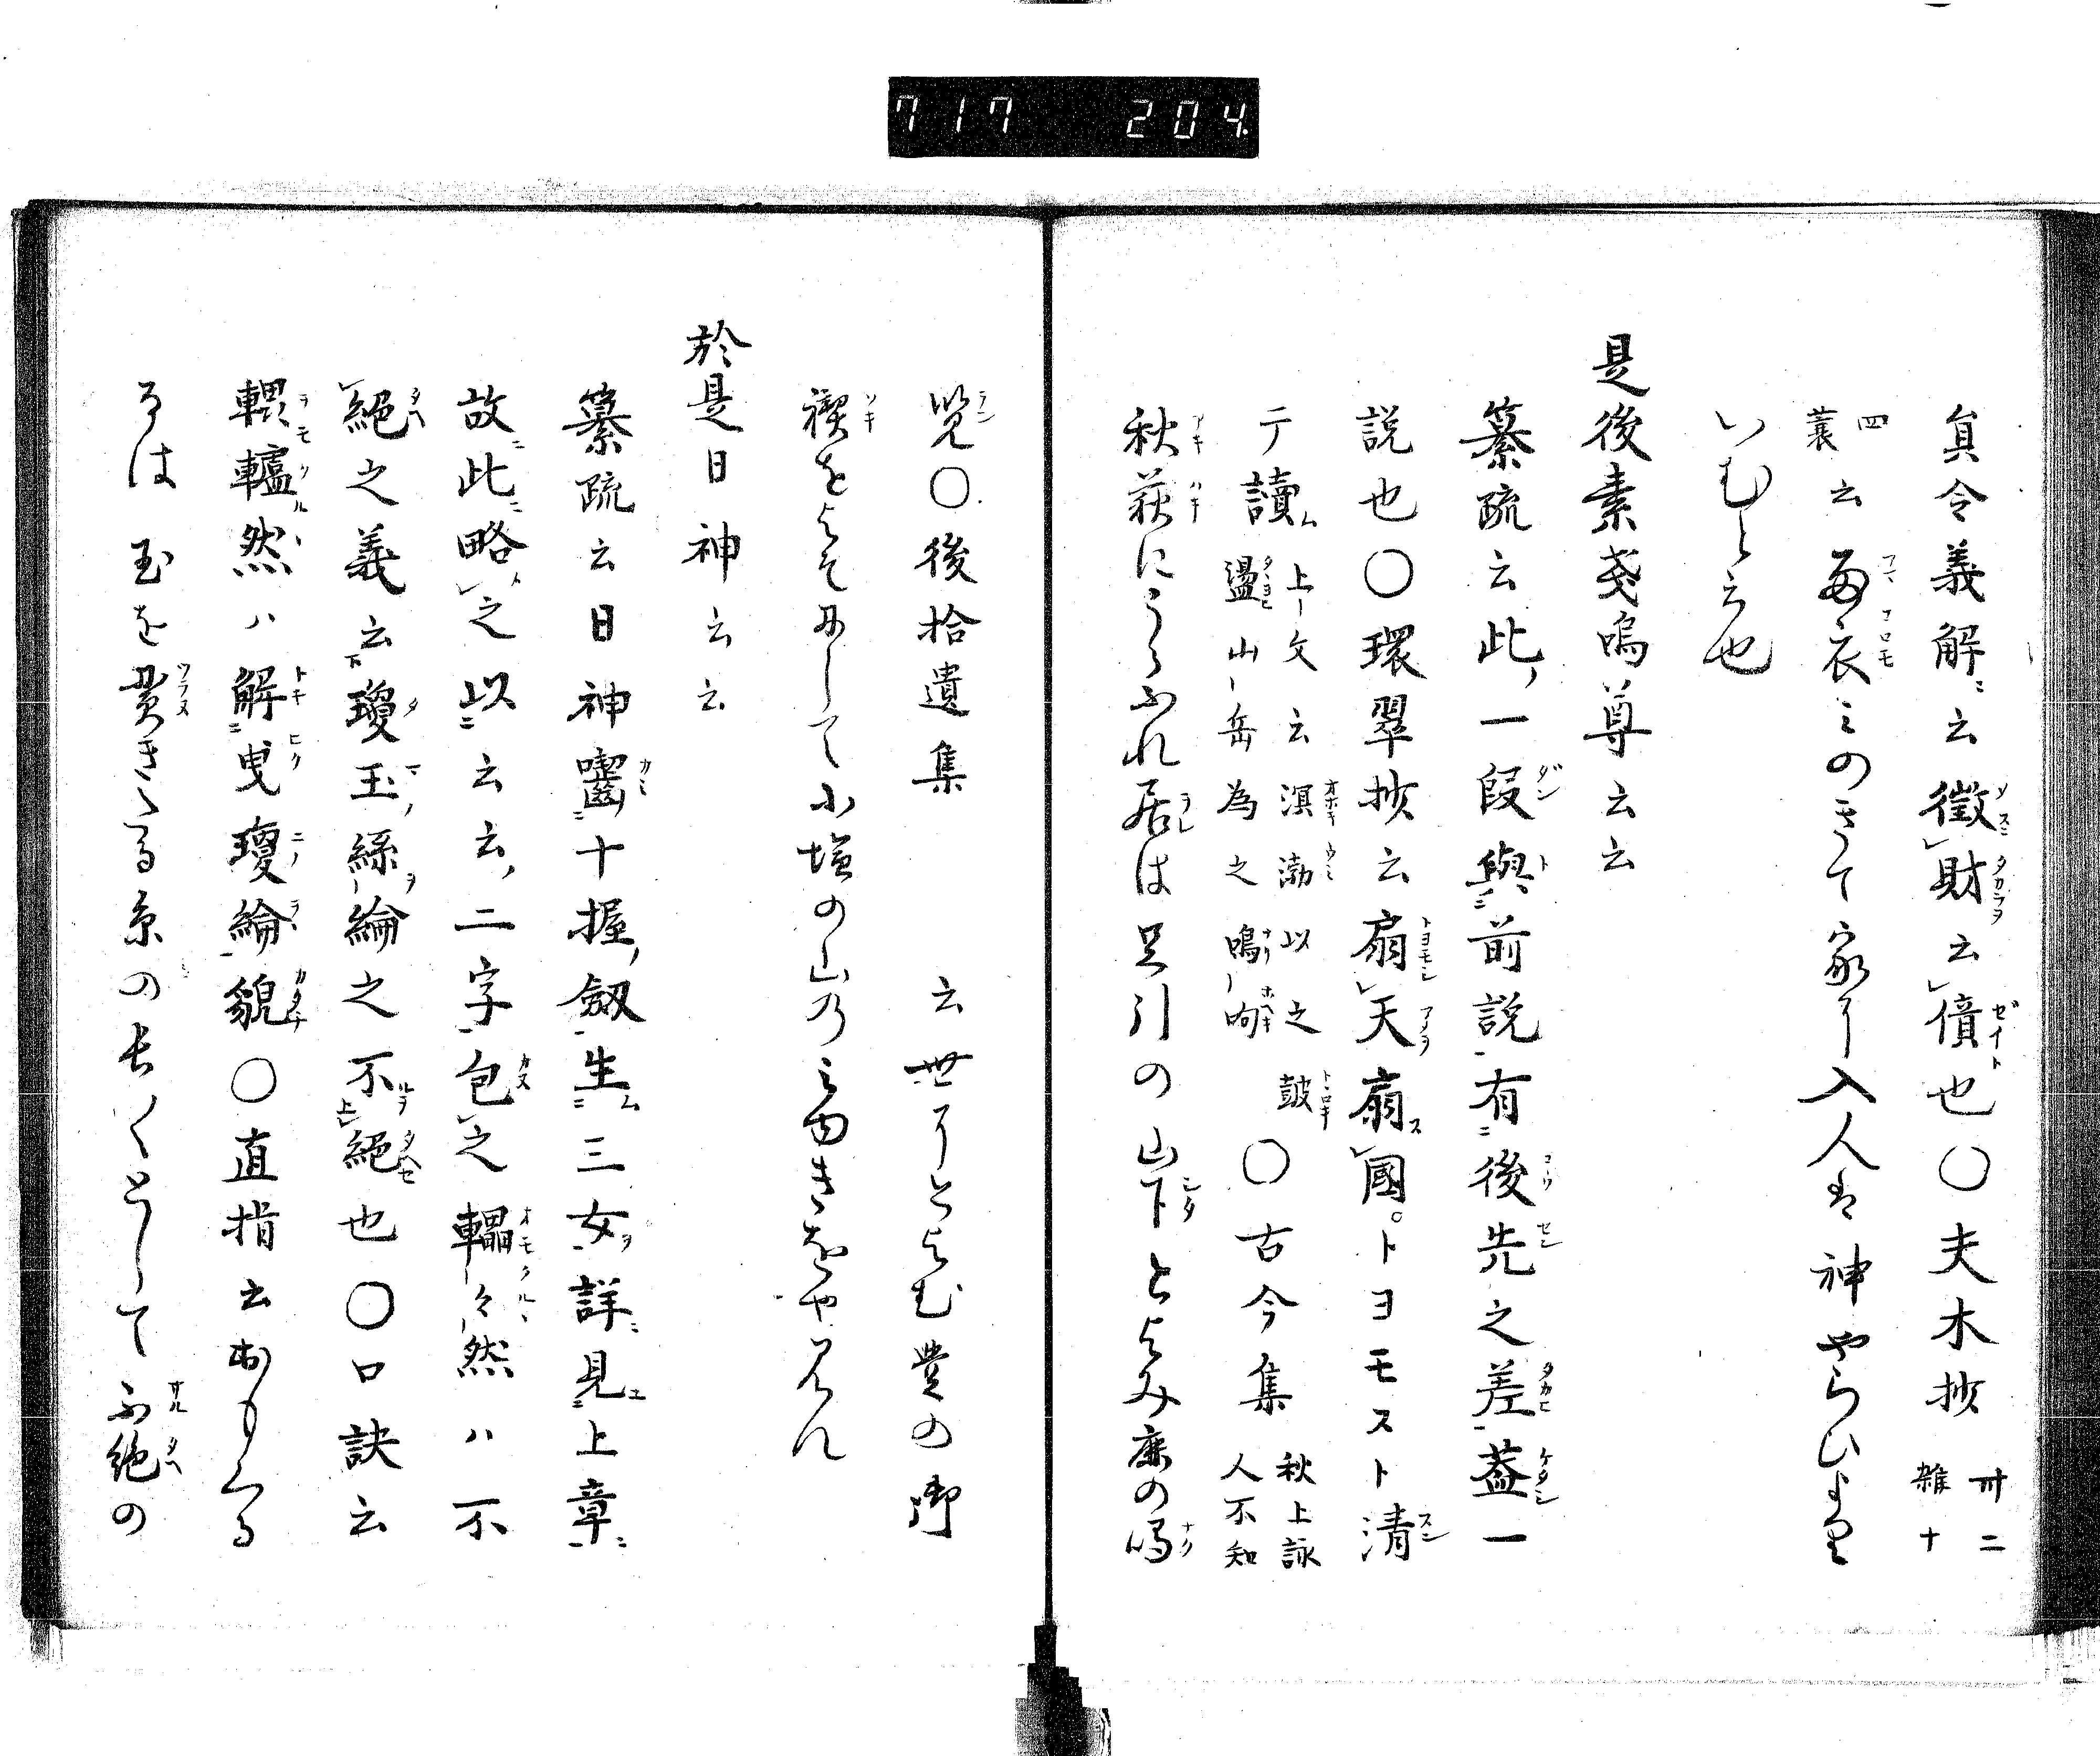 717 204
負令義解ニ云徴財云債也〇夫木抄 卅二 雑十
四 蓑云雨衣ミのきて家に入人は神やらひより
いむと云也
是後素戔嗚尊云云
纂疏云此一段與前説有後先之差蓋一
説也〇環翠抄云扇天扇國。トヨモスト清
テ讀 上文云溟渤以之鼓盪山岳為之鳴呴 〇古今集 秋上詠人不知
秋萩にうらふれ居は足引の山下とよみ鹿の鳴
覧〇後拾遺集 云世にとよむ豊の御
禊をよそにして小塩の山のみゆきをやみん
於是日神云云
纂疏云日神囓十握劔生三女詳見上章
故此略之以云云二字包之轠々然ハ不
絶之義云瓊玉絲綸之不絶也〇口訣云
轠轤然ハ解曳瓊綸貌〇直指云おもくる
るは玉を貫きたる糸の長くとして不絶の